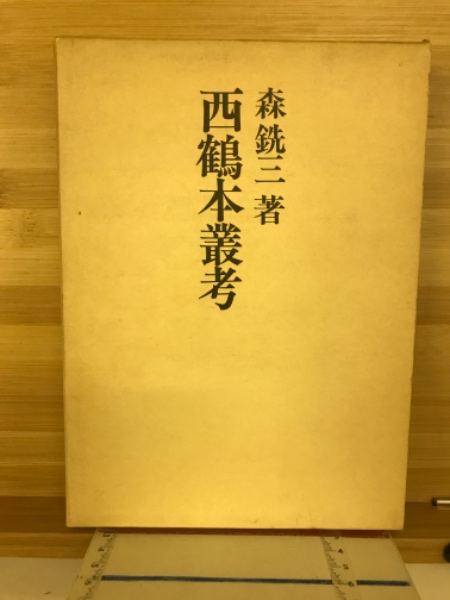 森銑三 著
西鶴本叢考